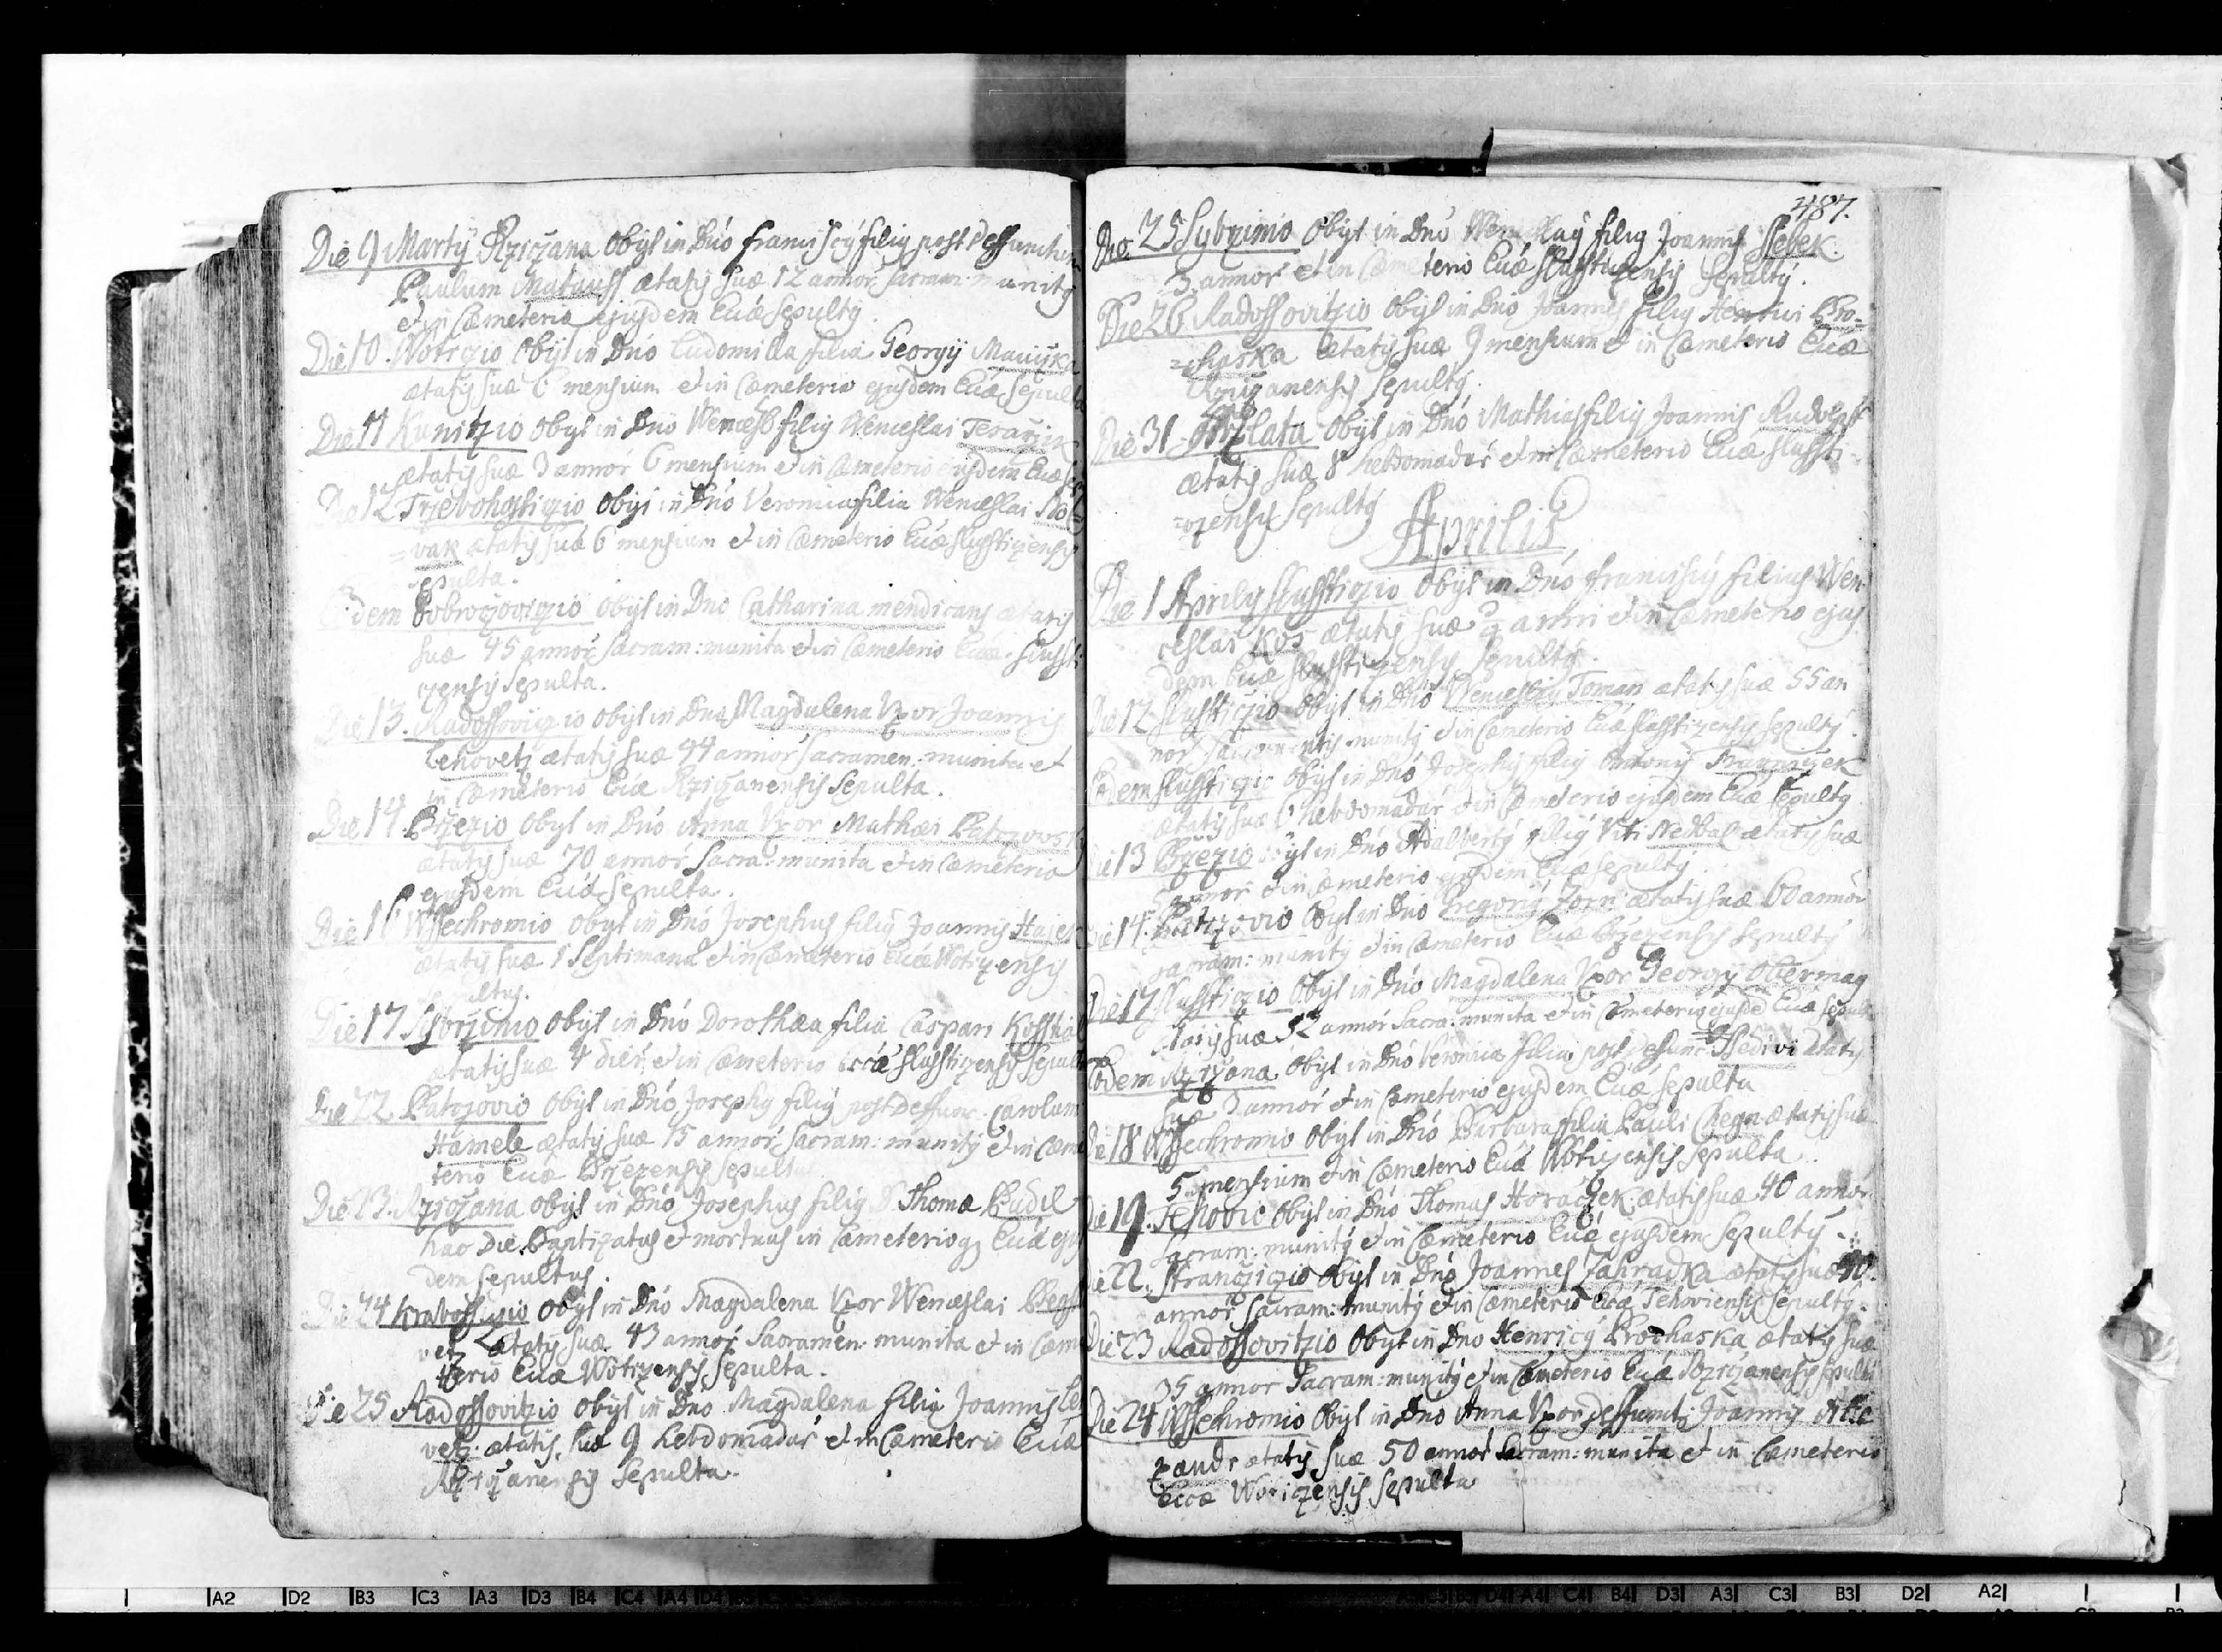 Die 9 Martÿ Rziczana Obÿt in Dnó Franciscÿ filiÿ post Deffunctum
Paulum Matauss ætatis suæ 12 annor sacram: munitÿ
et in Cæmeterio ejusdem Ecciæ Sepultÿ.
Die 10. Wotrczio Obÿt in Dnó Ludomilla filia Georgÿ
ætatis suæ 6 mensium et in Cæmeterio ejusdem Ecciæ Sepulta
Die 11 Kunitzio obÿt in Dnó filiÿ Wenceslai
ætatis suæ 3 annor 6 mensium et in Cæmeterio ejusdem Ecciæ
Die 12 Trzebohosticzio obÿt in Dnó Veronica filia Wenceslai No=
=vak ætatis suæ 6 mensium et in Cæmeterio Ecciæ Slusstizensis
Sepulta.
Eodem Dobrozoviczio obÿt in Dnó Catharina mendicans ætatis
suæ 45 annor sacram: munita et in Cæmeterio Ecciæ Slussti
zensis Sepulta.
Die 13. Radossoviczio obÿt in Dnó Magdalena Vxor Joannis
Lehovetz ætatis suæ 44 annor sacramen: munita et
in Cæmeterio Ecciæ Rziczanensis Sepulta.
Die 14 Brzezio Obÿt in Dnó Anna Vxor Mathæi
ætatis suæ 70 annor sacra: munita et in Cæmeterio
ejusdem Ecciæ Sepulta.
Die 16 Wssechromio Obÿt in Dnó Josephus filiÿ Joannis Hajek
ætatis suæ 1 Septimana et in Cæmeterio Ecciæ Wotizensis
Sepultus.
Die 17 obÿt in Dnó Dorothæa filia Caspari
ætatis suæ 4 dier, et in Cæmeterio Ecciæ Slusstizensis Sepulta
Die 22 Patozovio Obÿt in Dnó Josephÿ filiÿ post Deffunc: Carolum
Hamele ætatis suæ 15 annor, sacram: munitÿ et in Cæme
terio Ecciæ Brzezensis Sepultus
Die 23. Rziczana obÿt in Dnó Josephus filiÿ Thomæ Pudil
hac Die Baptizatus et mortuus in Cæmeterioq Ecciæ ejus
dem Sepultus.
Die 24 obÿt in Dnó Magdalena Vxor Wenceslai
vetz ætatis suæ 43 annor Sacramen: munita et in Cæme
terio Ecciæ Wotizensis Sepulta.
Die 25 Radossovitzio obÿt in Dnó Magdalena filia Joannis Leho
vetz ætatis suæ 9 hebdomadar et in Cæmeterio Ecciæ
Rziczanensis Sepulta.
487.
Die 25 Sybrzinio Obÿt in Dnó Wenceslaÿ filiÿ Joannis Ssebek
3. annor et in Cæmeterio Ecciæ Slusstizensis Sepultÿ.
Die 26 Radossovitzio Obÿt in Dnó Joannes filiÿ Henrici Pro=
=chaska ætatis suæ 9 mensium et in Cæmeterio Ecciæ
Rziczanensis Sepultÿ.
Die 31. Obÿt in Dnó Mathias filiÿ Joannis Rudolff
ætatis suæ 8 hebdomadar et in Cæmeterio Ecciæ Slussti=
=zensis Sepultÿ
Aprilis
Die 1 Aprilis Slussticzio Obÿt in Dnó Franciscÿ filius Wen
ceslai Kos ætatis suæ anni et in Cæmeterio ejus
dem Ecciæ Slusstizensis Sepultÿ.
Die 12 Slussticzio Obÿt in Dnó Wenceslaÿ Toman ætatis suæ 55 an
nor sacramentis munitÿ et in Cæmeterio Ecciæ Slusstizensis Sepultÿ.
Eodem Slussticzio Obÿt in Dnó Josephÿ filiÿ Antonÿ
ætatis suæ 6 hebdomadar et in Cæmeterio ejusdem Ecciæ Sepultÿ
Die 13 Brzezio obÿt in Dnó Adalbertÿ filiÿ Viti Nedbal ætatis suæ
5 annor et in Cæmeterio ejusdem Ecciæ Sepultÿ.
Die 14. Patozovio Obÿt in Dnó Gregoriÿ Zorn ætatis suæ 60 annor
sacram: munitÿ et in Cæmeterio Ecciæ Brzezensis Sepultÿ
Die 17 Slussticzio Obÿt in Dnó Magdalena Vxor Georgÿ Obermag
ætatis suæ 52 annor Sacra: munita et in Cæmeterio ejusde Ecciæ Sepulta
Eodem Rziczana Obÿt in Dnó Veronica filia post defunc: Ssedivi ætatis
suæ 3 annor et in Cæmeterio ejusdem Ecciæ Sepulta
Die 18 Wssechromio Obÿt in Dnó Barbara filia Pauli ætatis suæ
5 mensium et in Cæmeterio Ecciæ Wotizensis Sepulta.
Die 19. Tehovie Obÿt in Dnó Thomas Horaczek ætatis suæ 40 annor.
sacram: munitÿ et in Cæmeterio Ecciæ ejusdem Sepultÿ.
Die 22. Stranczizio Obÿt in Dnó Joannes Zahradka ætatis suæ 40.
annor sacram: munitÿ et in Cæmeterio Ecciæ Tehoviensis Sepultÿ.
Die 23 Radossovitzio Obÿt in Dnó Henricÿ Prochaska ætatis suæ
35 annor Sacram: munitÿ et in Cæmeterio Ecciæ Rziczanensis Sepultÿ
Die 24 Wssechromio Obÿt in Dnó Anna Vxor deffuncti Joannis Ale
xandr ætatis suæ 50 annor sacram: munita et in Cæmeterio
Ecciæ Wotizensis Sepulta